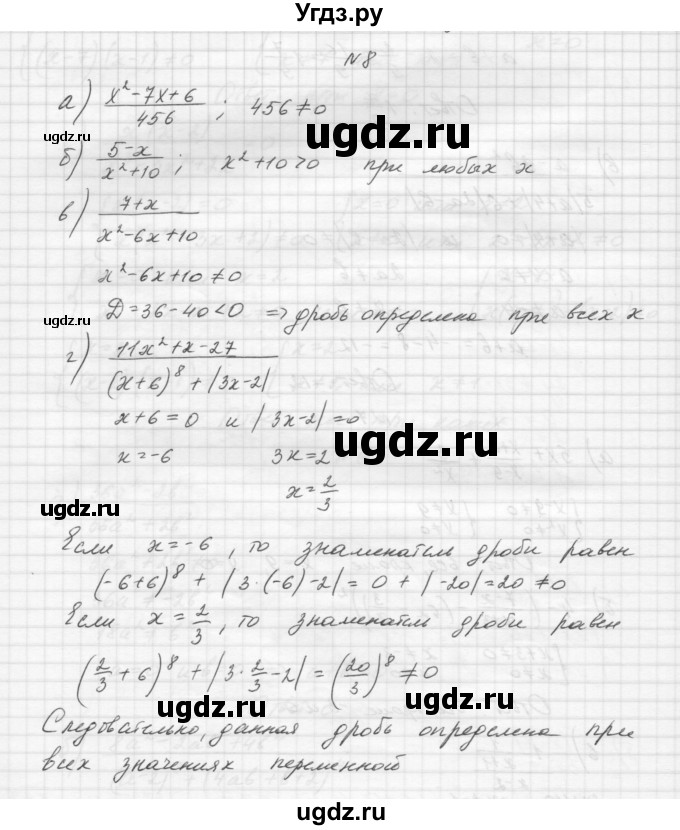 Угдз.ру
№8
а) (x² - 7x + 6)/456 ; 456 ≠ 0
ugdz.ru ugdz.ru
б) (5 - x)/(x² + 10) ; x² + 10 > 0 при любых x
в) (7 + x)/(x² - 6x + 10)
ugdz.ru
x² - 6x + 10 ≠ 0
Д = 36 - 40 < 0 => дробь определена при всех x
ugdz.ru
г) (11x² + x - 27)/((x + 6)⁸ + |3x - 2|)
x + 6 = 0 и |3x - 2| = 0
ugdz.ru
x = -6 3x = 2
x = 2/3
ugdz.ru
Если x = -6, то знаменатель дроби равен
(-6+6)⁸ + |3·(-6) - 2| = 0 + |-20| = 20 ≠ 0
ugdz.ru
Если x = 2/3, то знаменатель дроби равен
(2/3 + 6)⁸ + |3·2/3 - 2| = (20/3)⁸ ≠ 0
ugdz.ru
Следовательно, данная дробь определена при
всех значениях переменной
ugdz.ru
ugdz.ru